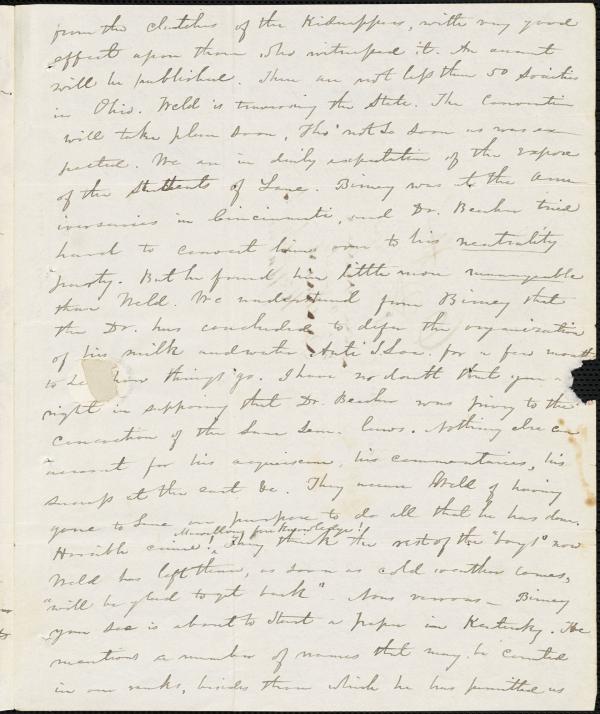 from the clutches of the Kidnappers, with very good
effect upon those who witnessed it. An account
will be published. There are not less than 50 Societies
in Ohio. Weld is traversing the State. The Convention
will take place soon, Tho' not so soon as was ex-
pected. We are in daily expectation of the Expose
of the Students of Lane. Birney was at the Ann-
iversaries in Cincinnati, and Dr. Beecher tried
hard to convert him over to his neutrality
party. But he found him little more manageable
than Weld. We understand from Birney that
the Dr. has concluded to defer the organization
of his milk and water Anti S. Soc. for a few months
to see how things go. I have no doubt that you
right in supposing that Dr. Beecher was privy to the
concoction of the Lane Sem. laws. Nothing else can
account for his acquiescence, his commentaries, his
at the east &c. They accuse Weld of having
gone to Lane on purpose to do all that he has done.
Marvellous foreknowledge!
Horrible crime! They think the rest of the "boys" now
Weld has left them, as soon as cold weather comes,
"will be glad to get back" Nous verrons — Birney
you see is about to start a paper in Kentucky. He
mentions a number of names that may be counted
in our ranks, besides those which he has permitted us